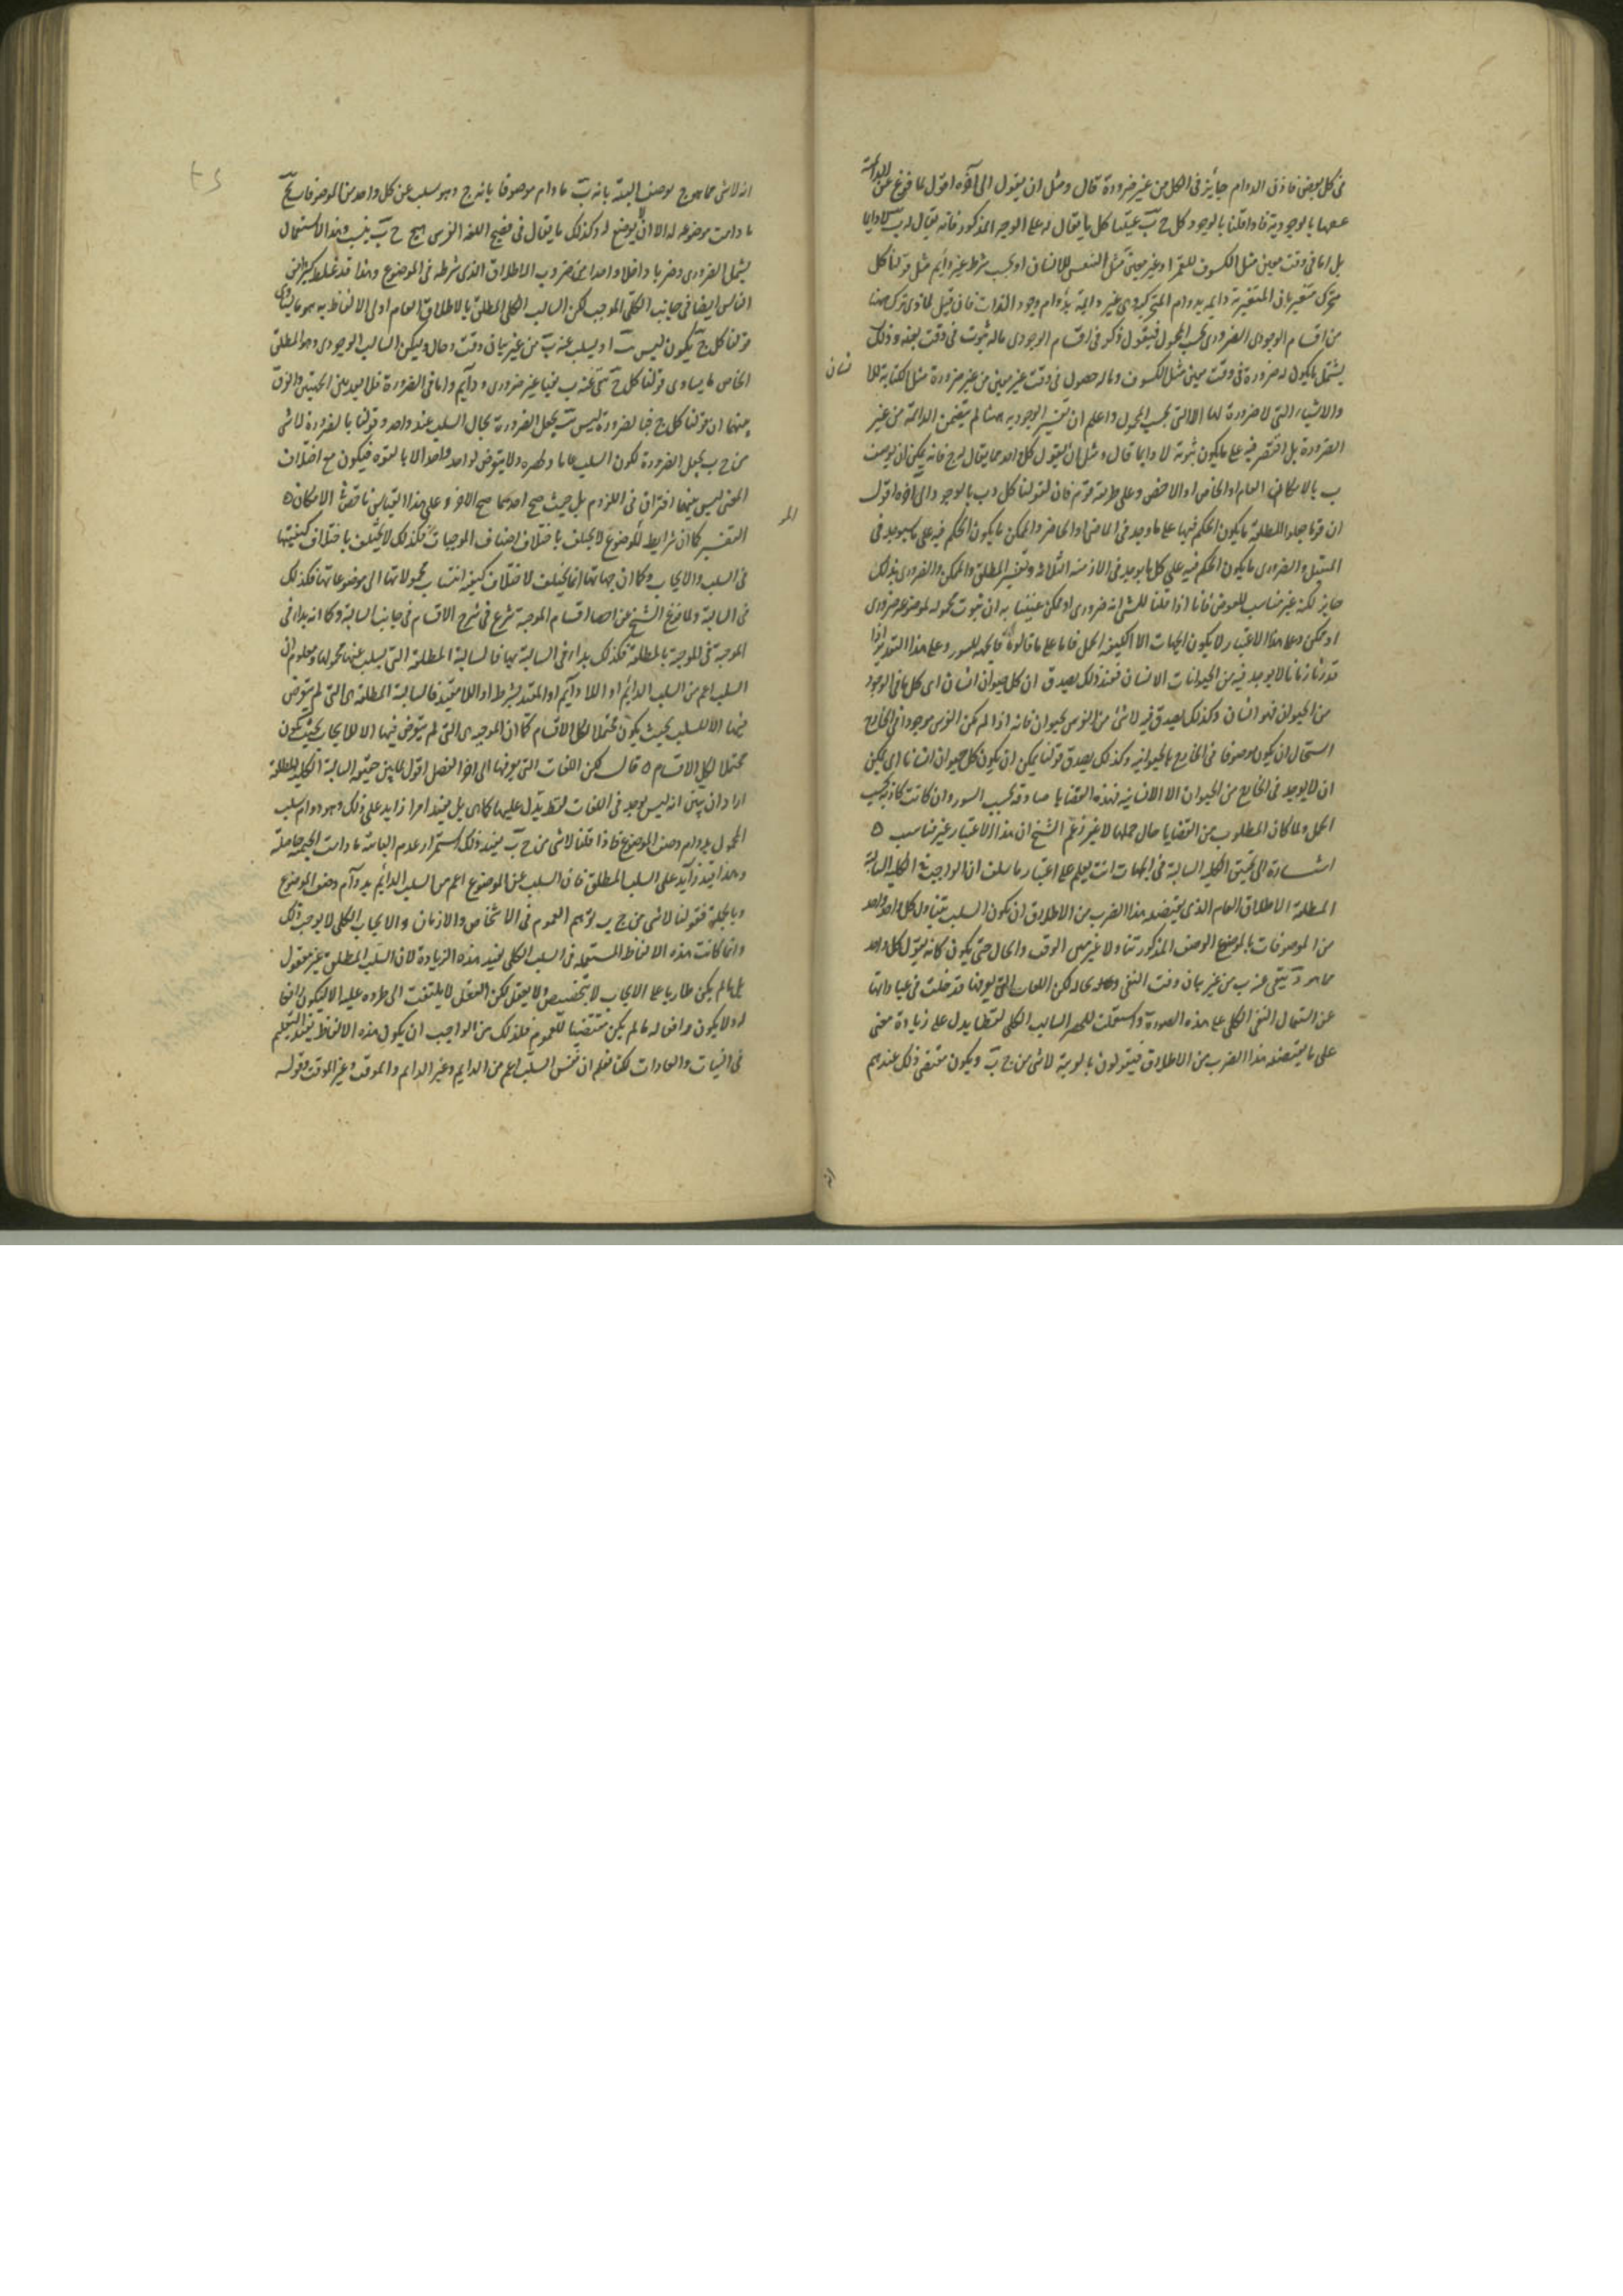 فى كل بعض فاذن الدوام جايز فى الكل من غير ضرورة قال ومثل ان يقول الى آخره اقول لما فرغ عن
بل اما فى وقت معين مثل الكسوف للقمر او غير معين مثل التنفس للانسان او بحسب شرط غير دايم مثل قولنا كل
متحرك متغير فان المتغيرية دايمة بدوام المتحركية وهى غير دايمة بدوام وجود الذات فان قيل لماذى ترك ههنا
من اقسام الوجودى الضرورى بحسب المحمول فيقول ذكر فى اقسام الوجودى ماله ثبوت فى وقت بعينه وذلك
يشتمل ما يكون له ضرورة فى وقت معين مثل الكسوف وماله حصول فى وقت غير معين من غير ضرورة مثل الكتابة للا
نسان
والاشياء التى لا ضرورة لها الا التى بحسب المحمول واعلم ان تفسير الوجودية ههنا لم يتضمن الدائمة من غير
الضرورة بل اقتصر فيه على ما يكون ثبوته لا دايما قال ومثل ان نقول كل واحد مما يقال له ج فانه يمكن ان يوصف
ب بالامكان العام او الخاص او الاخص وعلى طريقة قوم فان لقولنا كل ج ب بالوجود الى آخره اقول
ان قوما جعلوا المطلقة ما يكون الحكم فيها على ما وجد فى الماضى او الحاضر والممكن ما يكون الحكم فيه على ما سيوجد فى
المستقبل والضرورى ما يكون الحكم فيه على كل ما يوجد فى الازمنة الثلاثة وتفسير المطلق والممكن والضرورى بذلك
جايز لكنه غير مناسب للعرض فانا اذا قلنا للشى انه ضرورى او ممكن عنينا به ان ثبوت محموله لموضوعه ضرورى
او ممكن وعلى هذا الاعتبار لا يكون الجهات الا لكيفية الحمل فاما على ما قالوه فالجهة للسور وعلى هذا التقدير اذا
قدرنا زمانا لا يوجد فيه من الحيوانات الا انسان فعند ذلك يصدق ان كل حيوان انسان اى كل ما فى الوجود
من الحيوان فهو انسان وكذلك يصدق فيه لا شئ من الفرس بحيوان فانه اذا لم يكن الفرس موجودا فى الخارج
استحال ان يكون موصوفا فى الخارج بالحيوانية وكذلك يصدق قولنا يمكن ان يكون كل حيوان انسانا اى يمكن
ان لا يوجد فى الخارج من الحيوان الا الانسان فهذه القضايا صادقة بحسب السور وان كانت كاذبة بحسب
الحمل ولما كان المطلوب من القضايا حال حملها لا غير زعم الشيخ ان هذا الاعتبار غير مناسب ٥
اشارة الى تحقيق الكلية السالبة فى الجهات انت تعلم على اعتبار ما سلف ان الواجب فى الكلية السالبة
المطلقة الاطلاق العام الذى يقتضيه هذا الضرب من الاطلاق ان يكون السلب يتناول كل واحد واحد
من الموصوفات بالموضوع الوصف المذكور تناولا غير مبين الوقت والحال حتى يكون كانه يقول كل واحد
مما هو ج ينفى عنه ب من غير بيان وقت النفى وحاله لكن اللغات التى يعرفها قد خلت فى عباداتها
عن استعمال النفى الكلى على هذه الصورة واستعملت للحصر السالب الكلى لفظا يدل على زيادة معنى
على ما يقتضيه هذا الضرب من الاطلاق فيقولون بالعربية لا شى من ج ب ويكون مقتضى ذلك عندهم
انه لا شى مما هو ج يوصف البتة بانه ب ما دام موصوفا بانه ج وهو سلب عن كل واحد من الموصوفات بج
ما دامت موضوعة له الا ان لا يوضع له وكذلك ما يقال فى فصيح اللغة الفرس هيچ ج ب نيست وهذا الاستعمال
يشمل الضرورى وضربا واحدا من ضروب الاطلاق الذى شرطه فى الموضوع وهذا قد غلط كثيرا من
الناس ايضا فى جانب الكلى الموجب لكن السالب الكلى المطلق بالاطلاق العام اولى الالفاظ به هو ما يساوى
قولنا كل ج يكون ليس ب او يسلب عنه ب من غير بيان وقت وحال وليكن السالب الوجودى وهو المطلق
الخاص ما يساوى قولنا كل ج ينفى عنه ب نفيا غير ضرورى ودايم واما فى الضرورة فلا بعد بين الجهتين والفرق
بينهما ان قولنا كل ج فبالضرورة ليس ب يجعل الضرورة بحال السلب عند واحد واحد وقولنا بالضرورة لا شى
من ج ب يجعل الضرورة لكون السلب عاما ولحصره ولا يتعرض لواحد واحد الا بالقوة فيكون مع اختلاف
المعنى ليس بينهما افتراق فى اللزوم بل حيث صح احدهما صح الاخر وعلى هذا القياس فاقض فى الامكان ٥
التفسير كما ان شرايط الموضوع لا يختلف باختلاف اصناف الموجبات فكذلك لا يختلف باختلاف كيفيتها
فى السلب والايجاب وكما ان جهاتها انما يختلف لاختلاف كيفية انتساب محمولاتها الى موضوعاتها فكذلك
فى السالبة ولما فرغ الشيخ عن احصاء اقسام الموجبة شرع فى شرح الاقسام فى جانب السالبة وكما انه بدا فى
الموجبة بالمطلقة فكذلك بدا فى السالبة بها فالسالبة المطلقة التى يسلب عنها محمولها ومعلوم ان
السلب اعم من السلب الدائم او اللادايم او المقيد بشرط او اللا مقيد فالسالبة المطلقة هى التى لم يتعرض
فيها الا للسلب بحيث يكون محتملا لكل الاقسام كما ان الموجبة هى التى لم يتعرض فيها الا للايجاب بحيث يكون
محتملا لكل الاقسام ٥ قال لكن اللغات التى يعرفها الى اخر الفصل اقول لما بين حقيقة السالبة الكلية المطلقة
اراد ان يبين انه ليس يوجد فى اللغات لفظ يدل عليها كما هى بل يفيد امرا زايدا على ذلك وهو دوام سلب
المحمول بدوام وصف الموضوع فاذا قلنا لا شى من ج ب يفيد ذلك استمرار عدم البائية ما دامت الجيمية حاصلة
وهذا قيد زايد على السلب المطلق فان السلب عن الموضوع اعم من السلب الدائم بدوام وصف الموضوع
وبالجملة فقولنا لا شى من ج ب يوهم العموم فى الاشخاص والازمان والايجاب الكلى لا يوجب ذلك
وانما كانت هذه الالفاظ المستعملة فى السلب الكلى يفيد هذه الزيادة لان السلب المطلق غير معقول
بل ما لم يكن طاريا على الايجاب لا يتخصص ولا يعقل لكن العقل لا يلتفت الى طروه عليه الا ليكون رافعا
له ولا يكون رافعا له ما لم يكن مقتضيا للعموم فلذلك من الواجب ان يكون هذه الالفاظ يفيد التعميم
فى الشيات والعادات لكنا نعلم ان نفس السلب اعم من الدايم وغير الدايم والموقت وغير الموقت وقوله